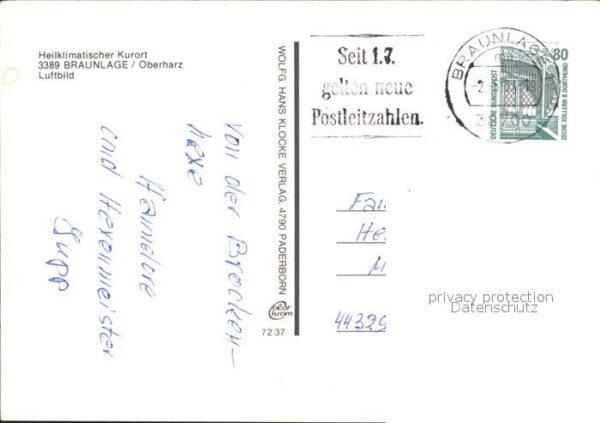 Heilklimatischer Kurort
3389 BRAUNLAGE / Oberharz
Luftbild
Von der Brocken-
hexe
Hannelore
und Hexenmeister
WOLFG. HANS KLOCKE VERLAG, 4790 PADERBORN
color
chrom
72 37
Seit 1.7.
gelten neue
Postleitzahlen.
BRAUNLAGE
80
DEUTSCHE BUNDESPOST
ZECHE ZOLLERN II DORTMUND
Fam
He
M
44329
privacy protection
Datenschutz